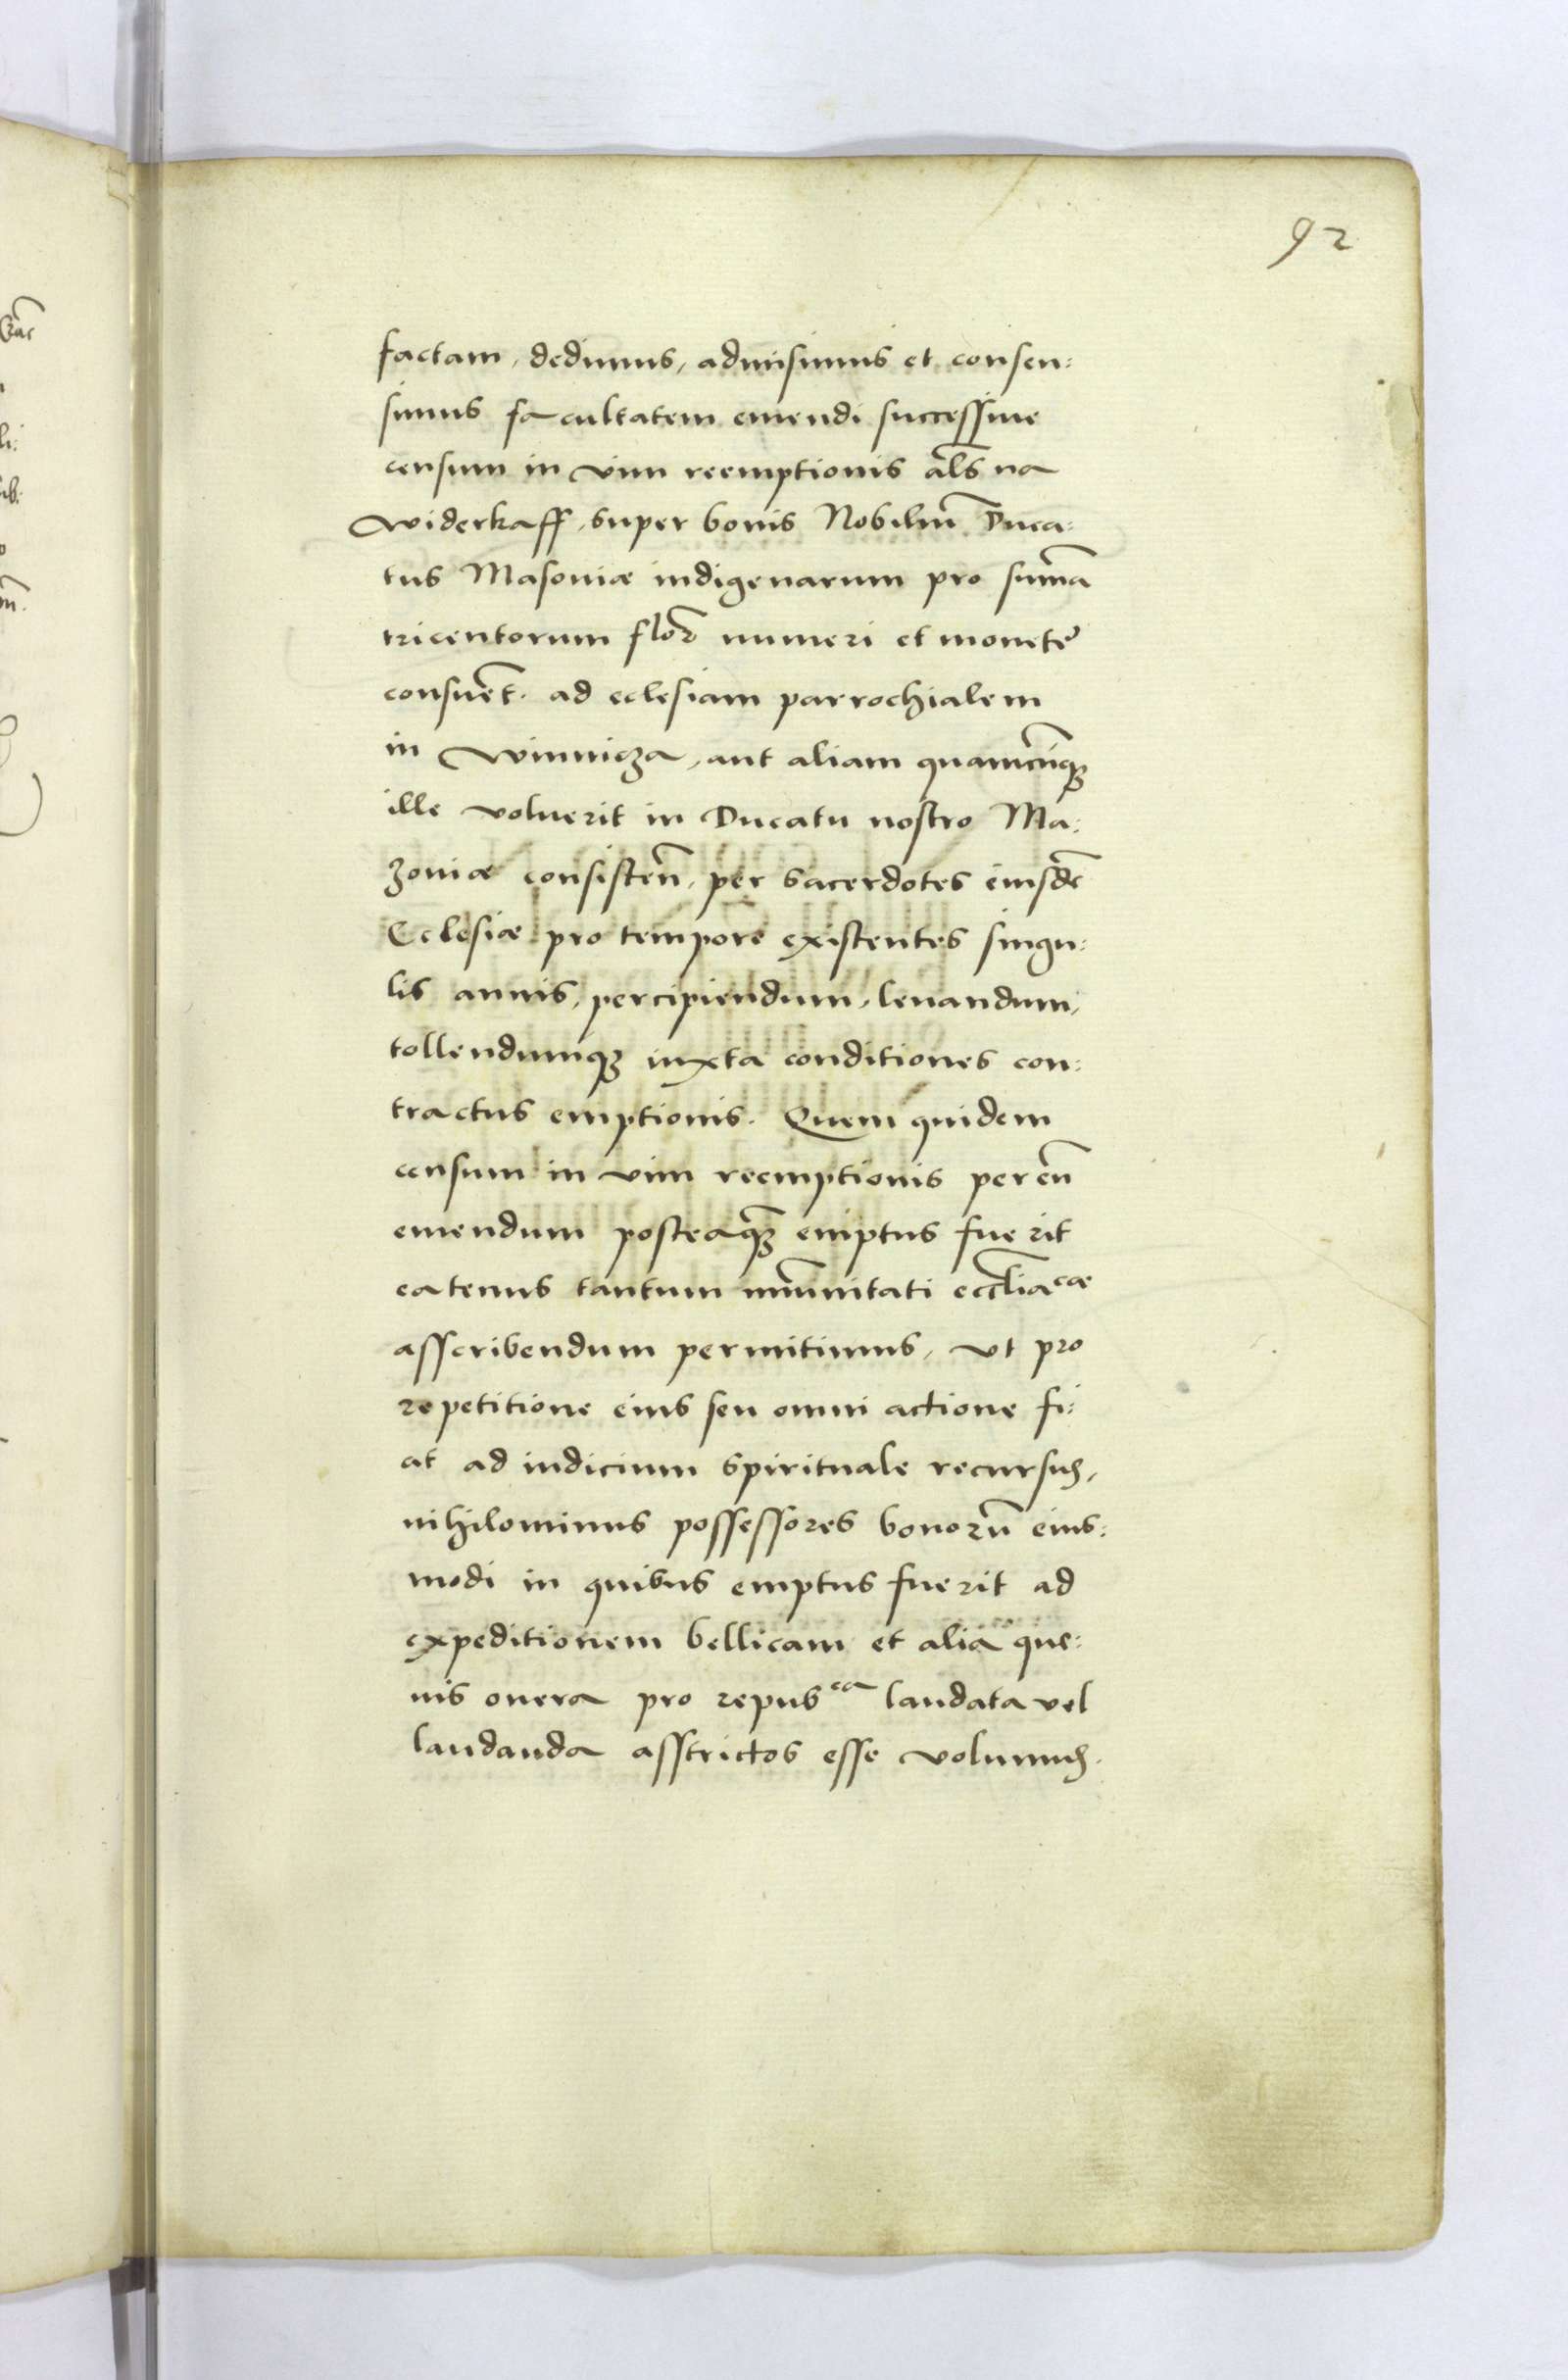 92
factam, dedimus, admisimus et consen:
simus facultatem emendi successiue
censum in vim reemptionis al̃s na
widerkaff, super bonis Nobiliũ Duca:
tus Masoniæ indigenarum pro sum̃a
tricentorum flor̃ numeri et monetę
consuet̃. ad eclesiam parrochialem
in Winnicza, aut aliam quamcũqꝫ
ille voluerit in Ducatu nostro Ma:
zoniæ consisteñ, per sacerdotes eiusdẽ
Eclesiæ pro tempore existentes singu:
lis annis, percipiendum, leuandum,
tollendumqꝫ iuxta conditiones con:
tractus emptionis. Quem quidem
censum in vim reemptionis per eũ
emendum posteaqꝫ̃ emptus fuerit
eatenus tantum im̃unitati eccl̃iacæ
asscribendum permitimus, vt pro
repetitione eius seu omni actione fi:
at ad iudicium spirituale recursuꝫ,
nihilominus possessores bonorũ eius:
modi in quibus emptus fuerit ad
expeditionem bellicam et alia que:
uis onera pro repub^ca laudata vel
laudanda asstrictos esse volumuꝫ.